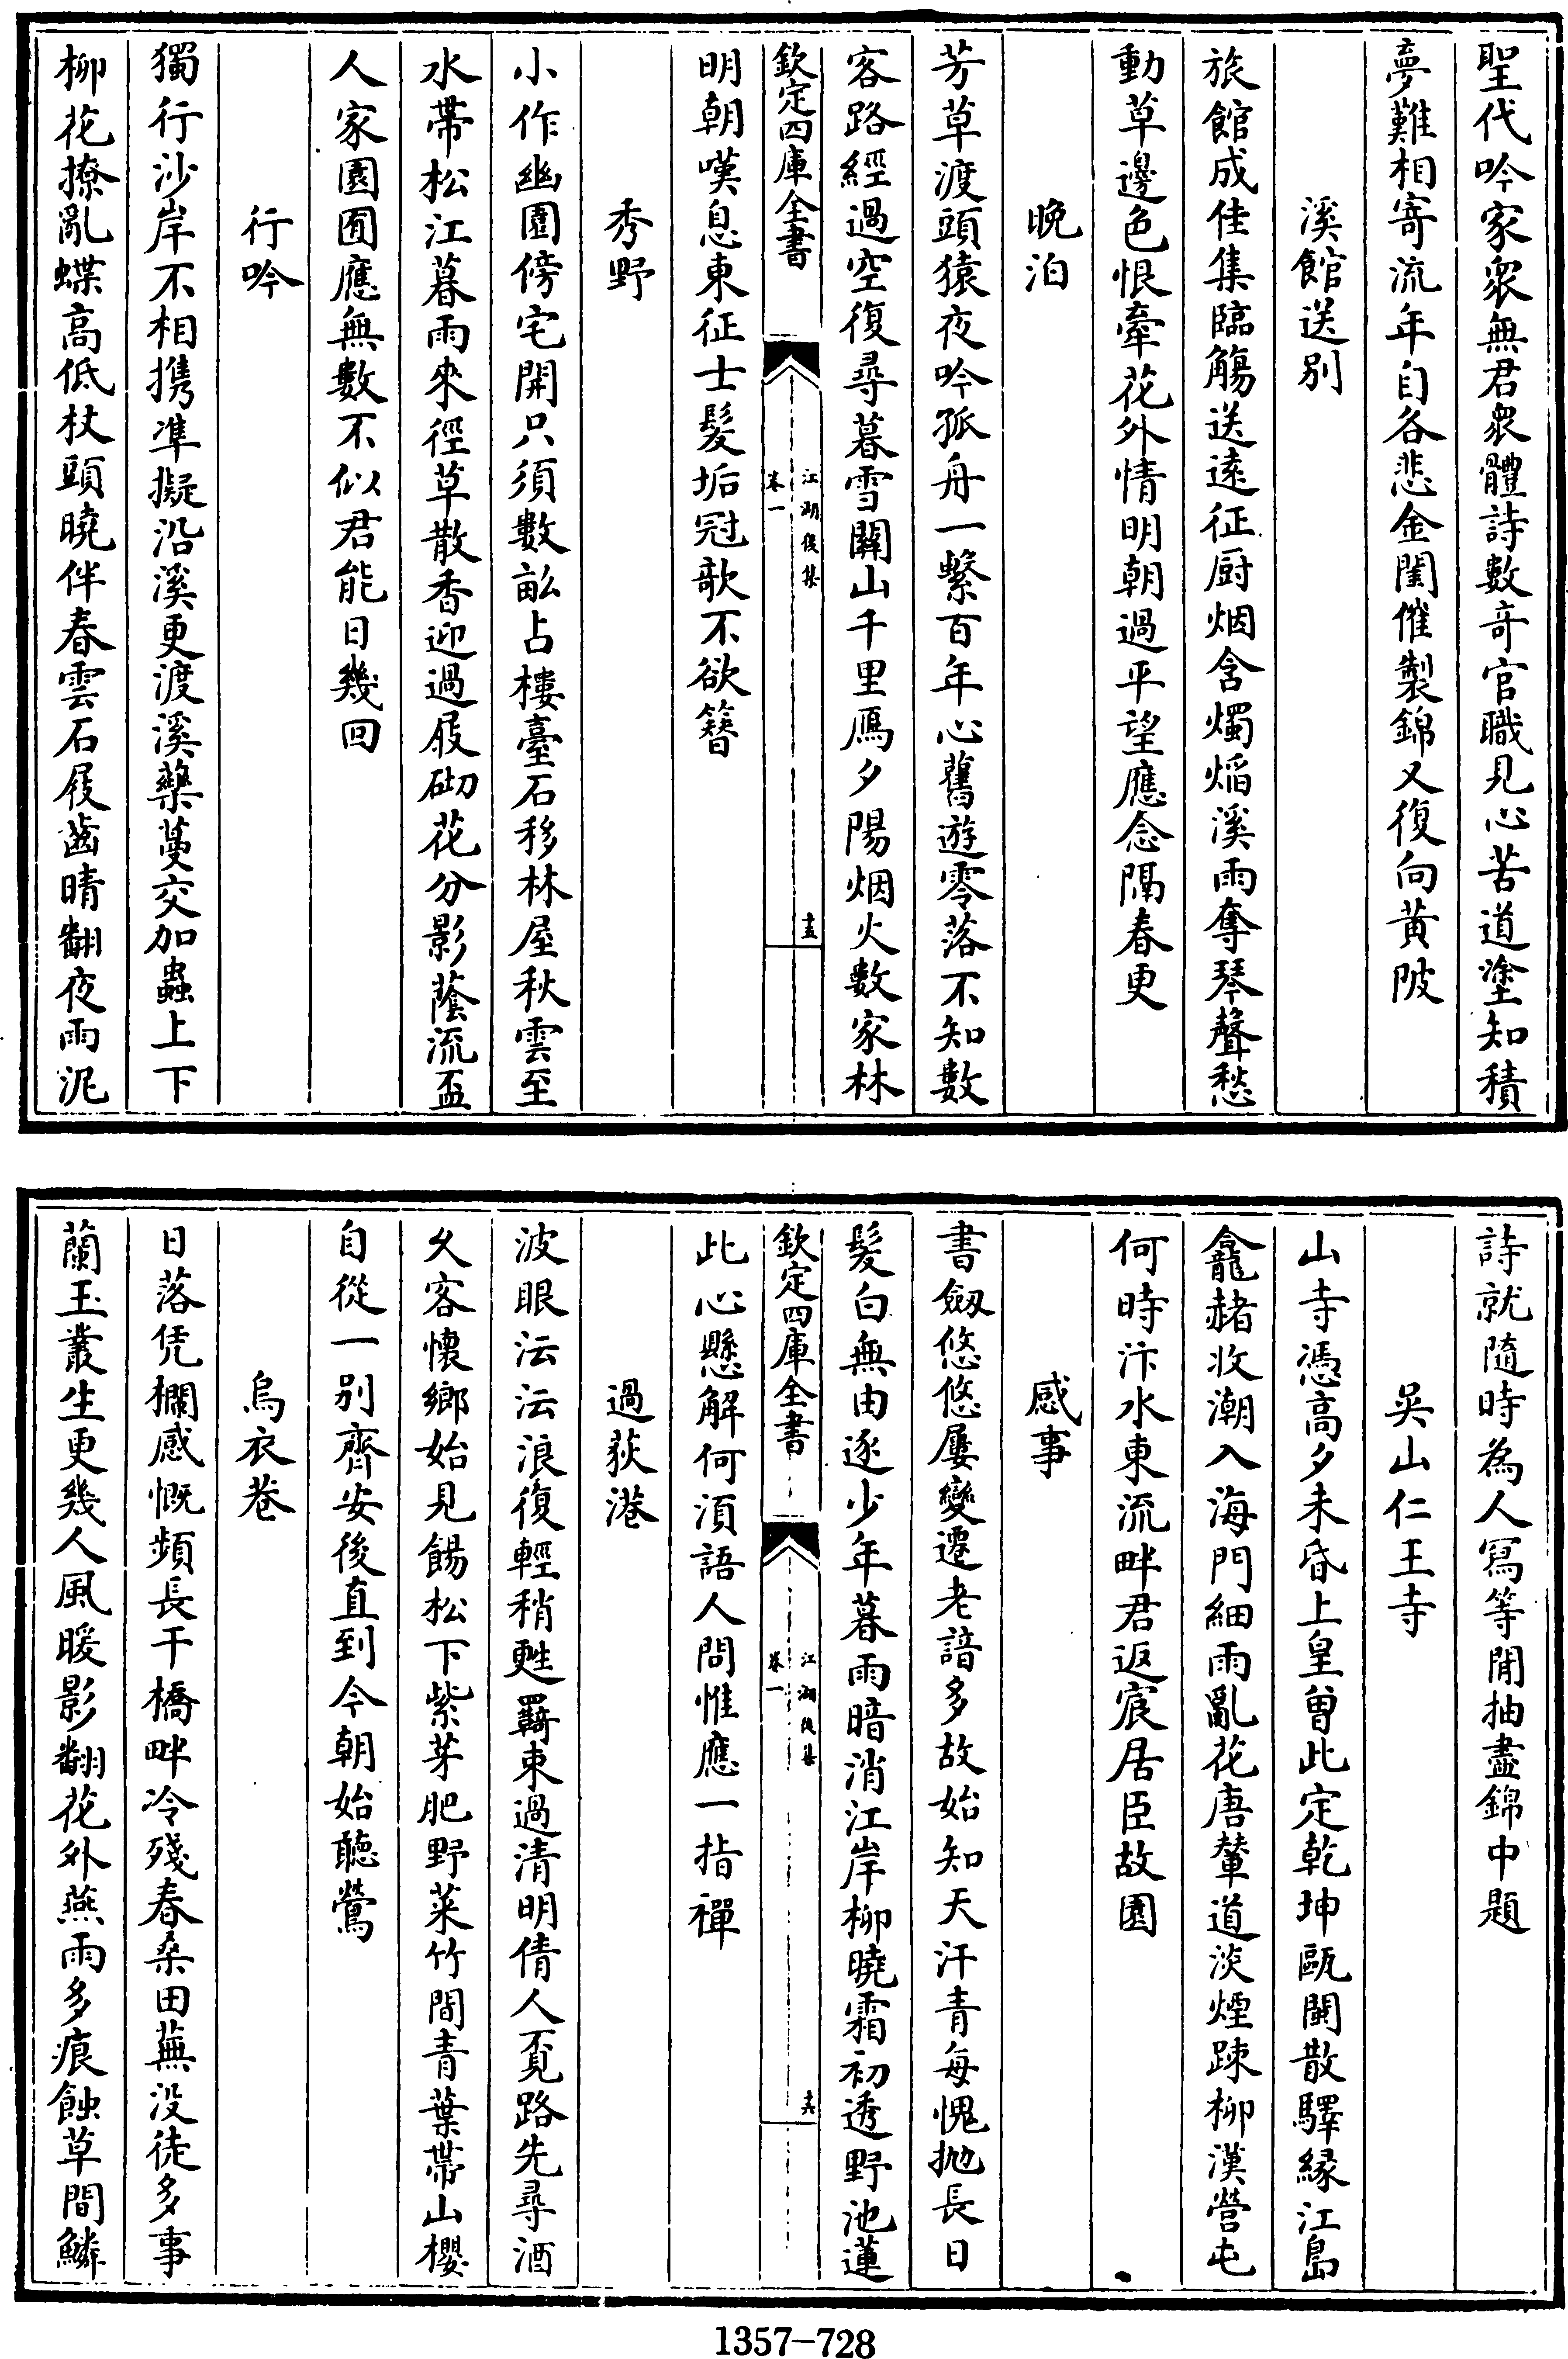 聖代吟家衆無君衆體詩數竒官職見心苦道塗知積
夢難相寄流年自各悲金閨催製錦又復向黄陂
溪館送别
旅館成佳集臨觴送逺征厨烟含燭焰溪雨奪琴聲愁
動草邊色恨牽花外情明朝過平望應念隔春更
晚泊
芳草渡頭猿夜吟孤舟一繫百年心舊遊零落不知數
客路經過空復尋暮雪闗山千里鴈夕陽烟火數家林
欽定四庫全書
江湖後集
卷一
十五
明朝嘆息東征士髮垢冠欹不欲簮
秀野
小作幽園傍宅開只須數畝占樓臺石移林屋秋雲至
水帶松江暮雨來徑草散香迎過屐砌花分影䕃流盃
人家園囿應無數不似君能日幾回
行吟
獨行沙岸不相携凖擬沿溪更渡溪藥蔓交加蟲上下
柳花撩亂蝶高低杖頭曉伴春雲石屐齒晴翻夜雨泥
詩就隨時為人冩等閒抽盡錦中題
吳山仁王寺
山寺馮高夕未昏上皇曽此定乾坤甌閩散驛縁江島
龕赭收潮入海門細雨亂花唐輦道淡煙踈柳漢營屯
何時汴水東流畔君返宸居臣故園
感事
書劒悠悠屢變遷老諳多故始知天汗青每愧抛長日
髮白無由逐少年暮雨暗消江岸柳曉霜初透野池蓮
欽定四庫全書
江湖後集
卷一
十六
此心懸解何湏語人問惟應一指禪
過荻港
波眼沄沄浪復輕稍甦羇束過清明倩人覔路先尋酒
久客懷鄉始見餳松下紫芽肥野菜竹間青葉帶山櫻
自從一别齊安後直到今朝始聽鶯
烏衣巷
日落凭欄感慨頻長干橋畔冷殘春桑田蕪没徒多事
蘭玉叢生更幾人風暖影翻花外燕雨多痕蝕草間鱗
1357-728